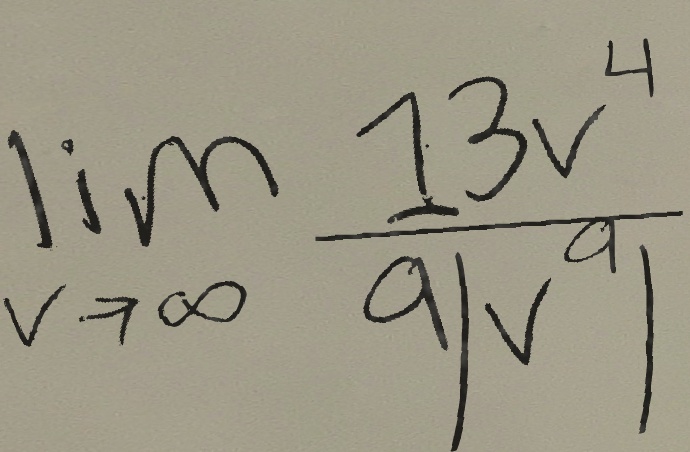 lim_{v→∞} \frac{13v^4}{9|v^9|}